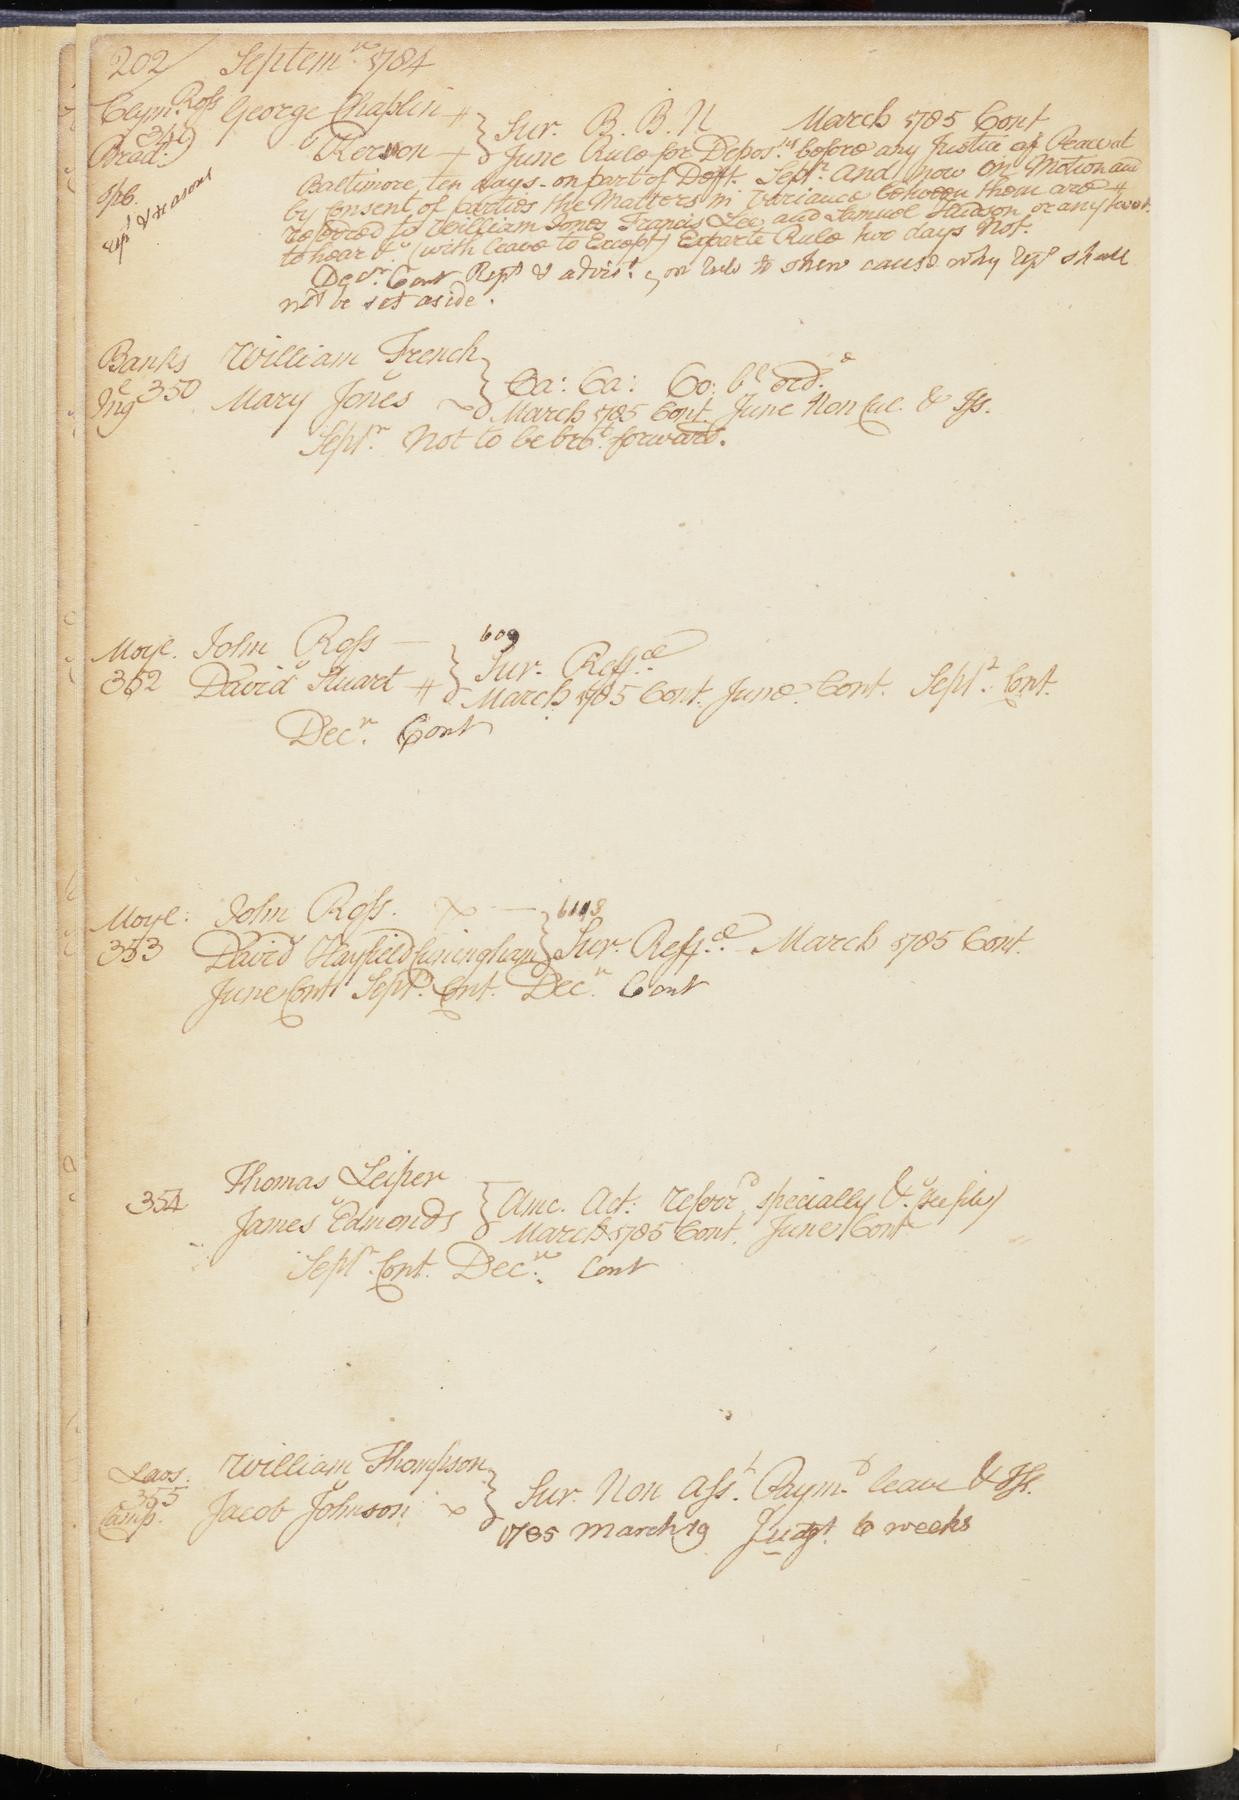 202/ Septem.r 1784
Clym. Ross George Chaplin
349 Sur. B. B. N March 1785 Cont
Brad: Kerson June Rule for Depos.ns before any Justice of Peace at
spl. Baltimore, ten days - on part of Deft. Sept.r And now On Motion and
by Consent of parties the Matters in Variance between them are
Exp.s & reasons referred to William Jones Francis Lee and Samuel Hudson or any two
to hear &c (with leave to Except) Exparte Rule two days Not.
Dec.r Cont Rep.t & advis.t, on rule to shew cause why rep.t shall
not be set aside.
Banks William French
350 Ca: Ca: Co: b.l ord.d
Ing.l Mary Jones March 1785 Cont. June Non Cul. & Iss.
Sept.r Not to be bro.t forward.
Moyl. John Ross 609
Sur. Reff.ce
352 David Stuart March 1785 Cont. June Cont. Sept.r Cont.
Dec.r Cont
Moyl: John Ross.
353 David Hayfield Cuningham Sur. Reff.ce March 1785 Cont.
June Cont Sept.r Cont. Dec.r Cont
Thomas Leiper
354 Amc. Act: referr'd specially &c.
James Edmonds March 1785 Cont. June Cont
Sept.r Cont. Dec.r Cont
Laws. William Thompson
355 Sur. Non Ass.t Paym.t leave & Iss.
Camp. Jacob Johnson 1785 March 19 Judg.t 6 weeks